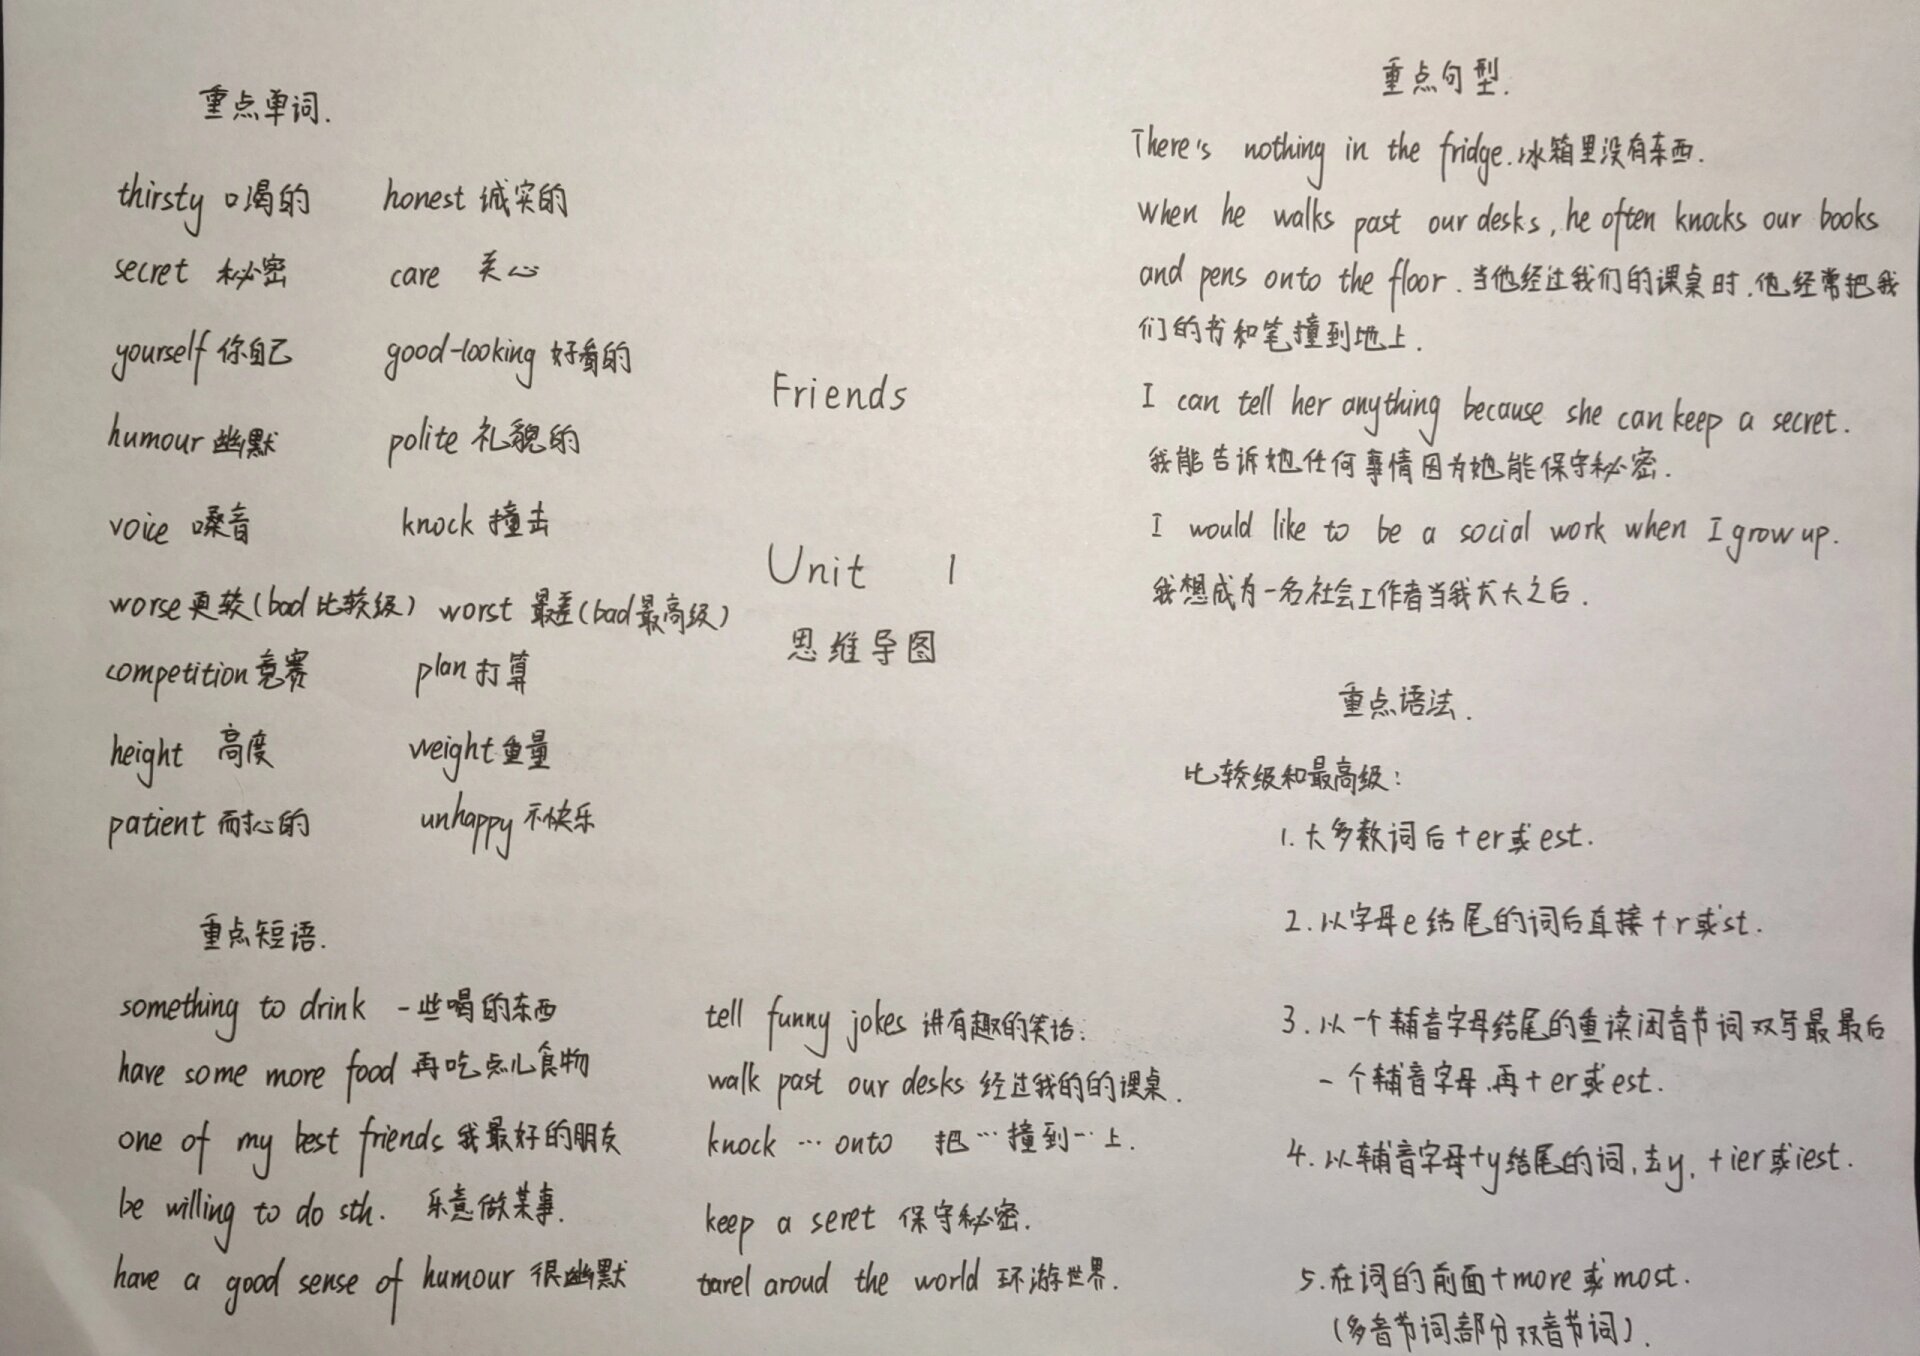 重点单词.
thirsty 口渴的 honest 诚实的
secret 秘密 care 关心
yourself 你自己 good-looking 好看的
humour 幽默 polite 礼貌的
voice 嗓音 knock 撞击
worse 更较(bad 比较级) worst 最差(bad 最高级)
competition 竞赛 plan 打算
height 高度 weight 重量
patient 耐心的 unhappy 不快乐
Friends
Unit 1
思维导图
重点短语.
something to drink 一些喝的东西
have some more food 再吃点儿食物
one of my best friends 我最好的朋友
be willing to do sth. 乐意做某事.
have a good sense of humour 很幽默
tell funny jokes 讲有趣的笑话.
walk past our desks 经过我的的课桌.
knock … onto 把…撞到…上.
keep a seret 保守秘密.
tarel aroud the world 环游世界.
重点句型.
There's nothing in the fridge.冰箱里没有东西.
When he walks past our desks, he often knocks our books
and pens onto the floor. 当他经过我们的课桌时.他经常把我
们的书和笔撞到地上.
I can tell her anything because she can keep a secret.
我能告诉她任何事情因为她能保守秘密.
I would like to be a social work when I grow up.
我想成为一名社会工作者当我长大之后.
重点语法.
比较级和最高级:
1. 大多数词后+er或est.
2. 以字母e结尾的词后直接+r或st.
3. 以一个辅音字母结尾的重读闭音节词双写最最后
一个辅音字母.再+er或est.
4. 以辅音字母+y结尾的词,去y,+ier或iest.
5. 在词的前面+more或most.
(多音节词,部分双音节词).